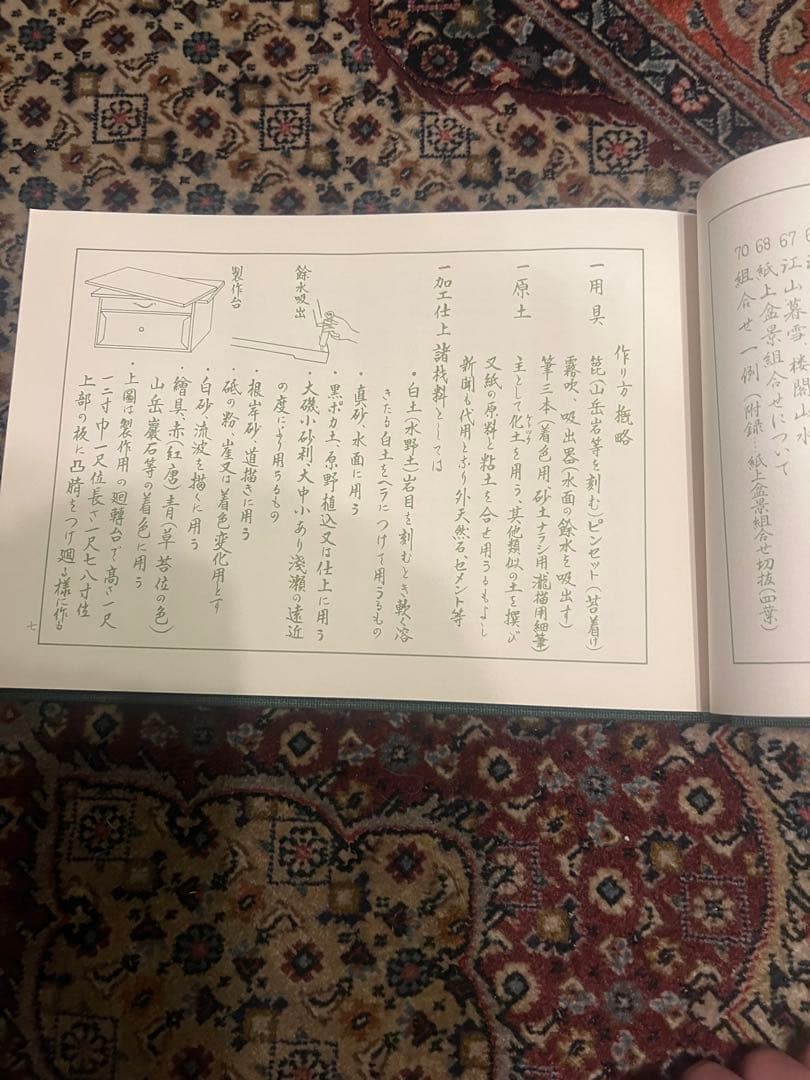 67 江山暮雪、楼閣山水
68 紙上盆景組合せについて
70 組合せ一例(附録…紙上盆景組合せ切抜(四葉)
作り方概略
一用具 箆(山岳岩等を刻む)ピンセット(苔着け)
霧吹、吸出器(水面の餘水を吸出す)
筆三本(着色用、砂土ナラシ用瀧描用細筆)
一原土 主として化土を用う、其他類似の土を撰び
ケトツチ
又紙の原料と粘土を合せ用うるもよし
新聞も代用となり外天然石、セメント等
一加工仕上諸材料としては
・白土(水野土)岩目を刻むとき軟く溶
きたる白土をヘラにつけて用うるもの
・真砂、水面に用う
・黒ボカ土、原野植込又は仕上に用う
・大磯小砂利、大中小あり淺瀬の遠近
の度により用うるもの
・根岸砂、道描きに用う
・砥の粉、崖又は着色変化用とす
・白砂、流波を描くに用う
・繪具、赤(紅唐)青(草苔位の色)
山岳巖石等の着色に用う
・上圖は製作用の廻轉台で高さ一尺
一二寸巾一尺位長さ一尺七八寸位
上部の板に凸時をつけ廻る様に作る
餘水吸出
製作台
七